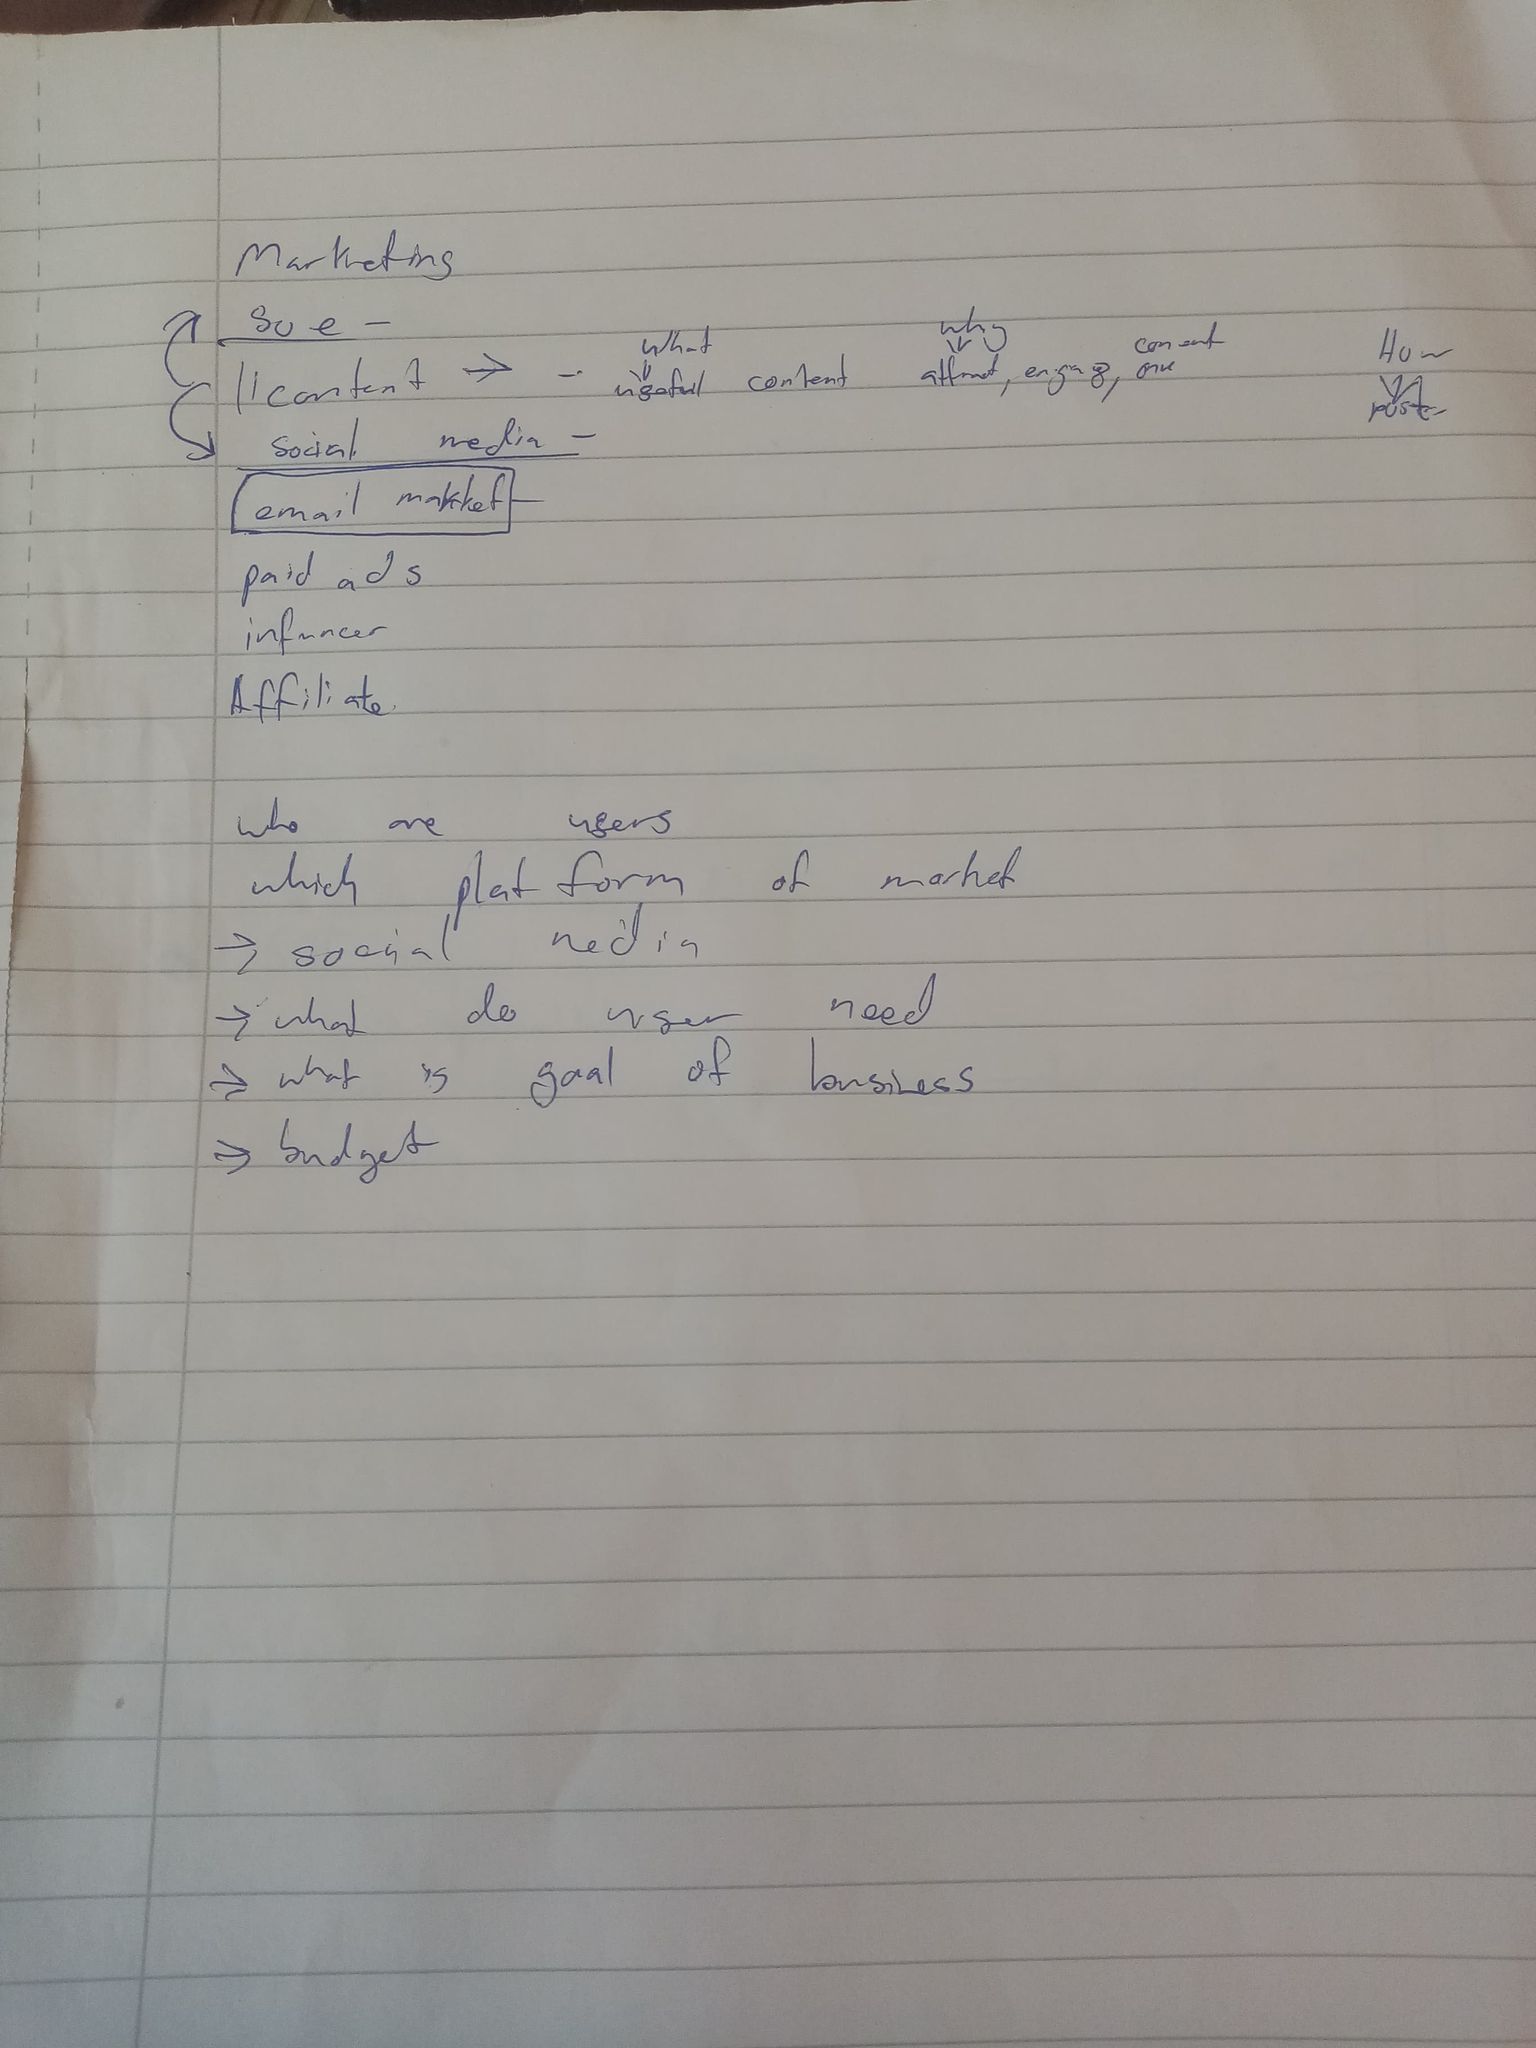 Marketing
soe -
what why How
content → - useful content attract, engag, convert
poste
social media -
email makket
paid ads
infuncer
Affiliate.
who are users
which platform of market
→ social media
→ what do user need
⇒ what is goal of business
⇒ budget